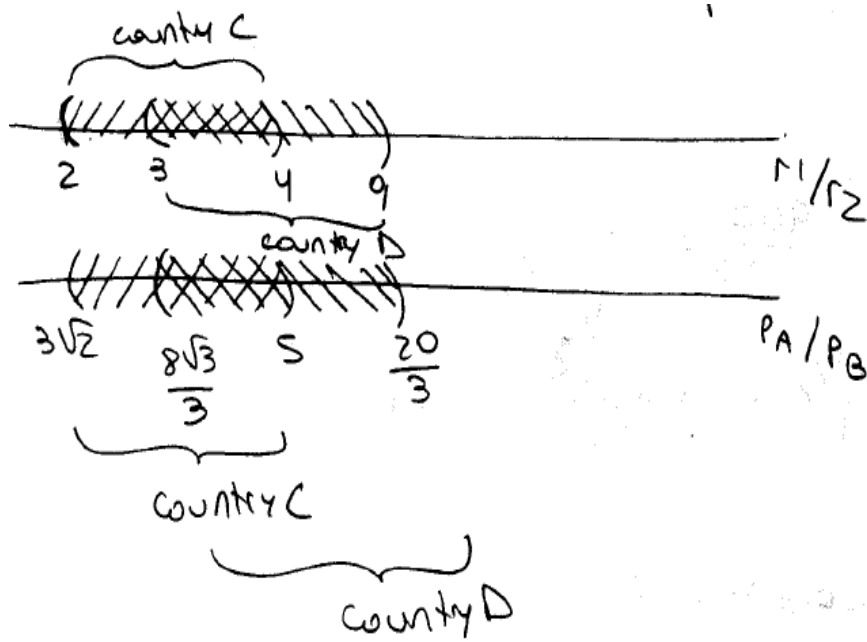 county C
2 3 4 9
r1/r2
country D
3√2 8√3/3 5 20/3
PA/PB
country C
country D